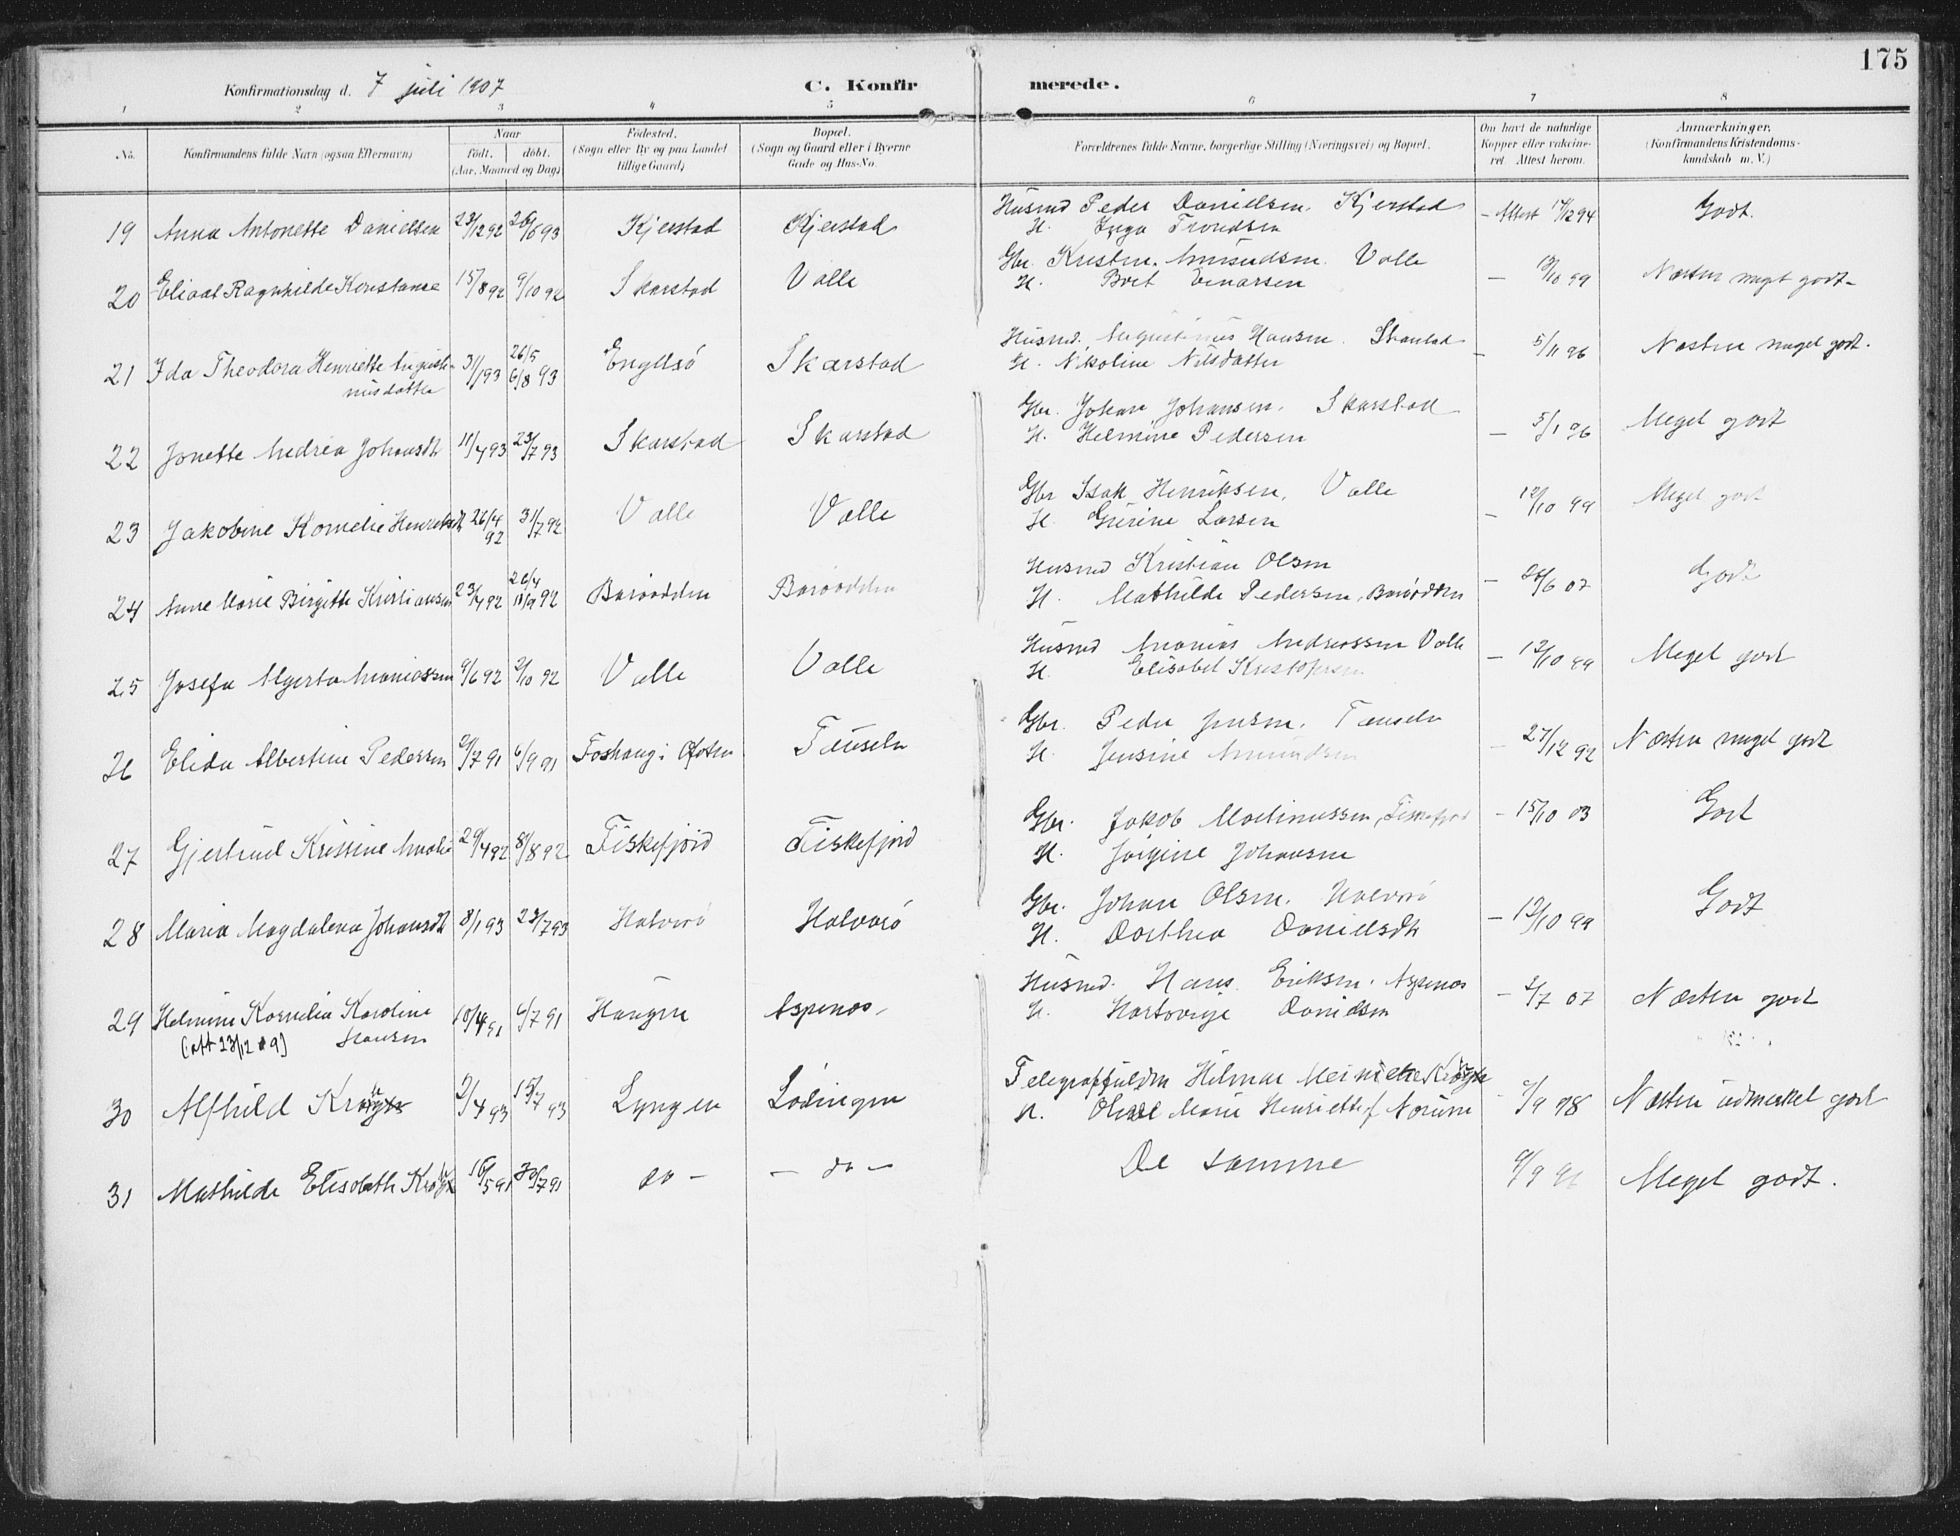 175
Konfirmationsdag d. 7 juli 1907 C. Konfir merede.
1 2 3 4 5 6 7 8
No. Konfirmandens fulde Navn (ogsaa Efternavn) Naar født. døbt. (Aar, Maaned og Dag) Fødested. (Sogn eller By og paa Landet tillige Gaard) Bopæl. (Sogn og Gaard eller i Byerne Gade og Hus-No. Forældrenes fulde Navne, borgerlige Stilling (Næringsvei) og Bopæl. Om havt de naturlige Kopper eller vakcineret. Attest herom. Anmærkninger. (Konfirmandens Kristendomskundskab m. V.)
19 Anna Antonette Danielsen 23/12 92 26/6 93 Kjerstad Kjerstad Husmd Peder Danielsen. Kjerstad – Attest 17/12 94 Godt.
H. Inga Trondsen
20 Ragnhilde Konstanse 15/8 92 9/10 92 Skarstad Valle Gbr. Kristen Amundsen. Valle – 12/10 99 Næsten meget godt
H. Brit Einarsen
21 Ida Theodora Henriette Augusti- 31/1 93 26/5 6/8 93 Engelsø Skarstad Husmd. Augustinus Hansen. Skarstad – 5/11 96 Næsten meget godt.
nusdatter H. Nikoline Nilsdatter
22 Jonette Andrea Johansdt 11/4 93 23/7 93 Skarstad Skarstad Gbr. Johan Johansen. Skarstad – 5/1 96 Meget godt
H. Helmine Pedersen
23 Jakobine Kornelie 26/4 92 31/7 92 Valle Valle Gbr Isak Henriksen, Valle – 12/10 99 Meget godt
H. Gurine Larsen
24 Anne Marie Birgitte Kristiansen 23/4 92 26/4 11/9 92 Barøodden Barøodden Husmd Kristian Olsen – 26/6 07 Godt
H. Mathilde Pedersen, Barøodden
25 Josefa Algerta Ananiassen 9/6 92 2/10 92 Valle Valle Husmd Ananias Andreassen Valle – 12/10 99 Meget godt
H. Elisabet Kristofersen
26 Elida Albertine Pedersen 2/7 91 6/9 91 Foshaug i Ofoten Teuseln Gbr. Peder Jensen. Teuseln – 27/12 92 Næsten meget godt
H. Jensine Amundsen
27 Gjertrud Kristine Amalie 29/4 92 8/8 92 Fiskefjord Fiskefjord Gbr. Jakob Martinussen, Fiskefjord – 15/10 03 Godt
H. Jørgine Johansen
28 Maria Magdalena Johansdt 8/1 93 23/7 93 Halvarø Halvarø Gbr. Johan Olsen. Halvarø – 12/10 99 Godt
H. Dorthea Danielsdt
29 Helmine Kornelia Karoline 10/4 91 6/7 91 Haugen Aspenes Husmd. Hans Eriksen. Aspenes – 2/7 07 Næsten godt
(att 23/12 09) Hansen H. Hartvige Danielsen
30 Alfhild 2/4 93 15/7 93 Lyngen Lødingen Hilmar – 9/9 98 Næsten udmerket godt
H. Marie Henriette f. Norum
31 Mathilde Elisabeth 16/5 91 30/7 91 do – – do – De samme 9/9 96 Meget godt.